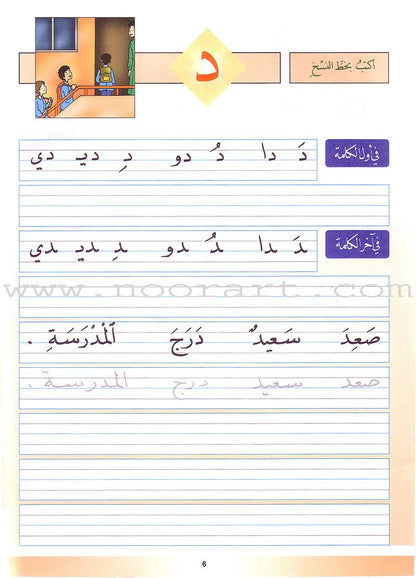 اكتب بخط النسخ
د
في أول الكلمة
دَ دا دُ دو دِ ديـ دي
في آخر الكلمة
ـدَ ـدا ـدُ ـدو ـدِ ـديـ ـدي
www.noorart.com
صَعِدَ سَعيدٌ دَرَجَ الْمَدْرَسَةِ .
صعد سعيد درج المدرسة .
6